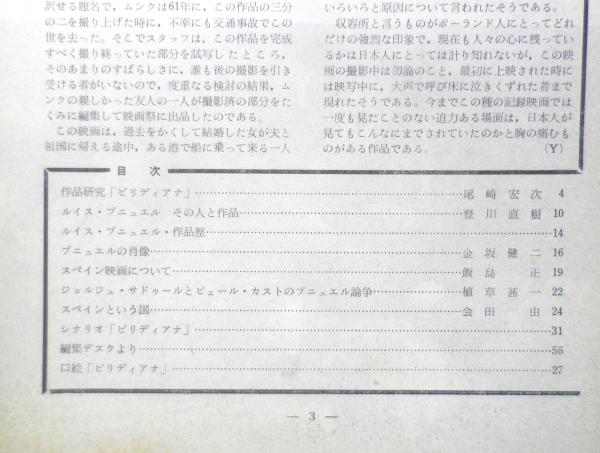 訳せる題名で，ムンクは61年に，この作品の三分
の二を撮り上げた時に，不幸にも交通事故でこの
世を去った。そこでスタッフは，この作品を完成
すべく撮り終っていた部分を試写したところ，
そのあまりのすばらしさに，誰も後の撮影を引き
受ける者がいないので，度重なる検討の結果，ム
ンクの親しかった友人の一人が撮影済の部分をた
くみに編集して映画祭に出品したのである。
この映画は，過去をかくして結婚した女が夫と
祖国に帰える途中，ある港で船に乗って来る一人
いろいろと原因について言われたそうである。
収容所と言うものがポーランド人にとってどれ
だけの強烈な印象で，現在も人々の心に残ってい
るかは日本人にとっては計り知れないが，この映
画の撮影中は勿論のこと，最初に上映された時に
は映写中に，大声で呼び床に泣きくずれた者まで
現れたそうである。今までこの種の記録映画では
一度も見たことのない迫力ある場面は，日本人が
見てもこんなにまでされていたのかと胸の痛むも
のがある作品である。 (Y)
目次
作品研究「ビリディアナ」…尾崎宏次 4
ルイス・ブニュエル その人と作品…登川直樹 10
ルイス・ブニュエル・作品歴…14
ブニュエルの肖像…金坂健二 16
スペイン映画について…飯島正 19
ジョルジュ・サドゥールとピェール・カストのブニュエル論争…植草甚一 22
スペインという国…会田由 24
シナリオ「ビリディアナ」…31
編集デスクより…56
口絵「ビリディアナ」…27
— 3 —